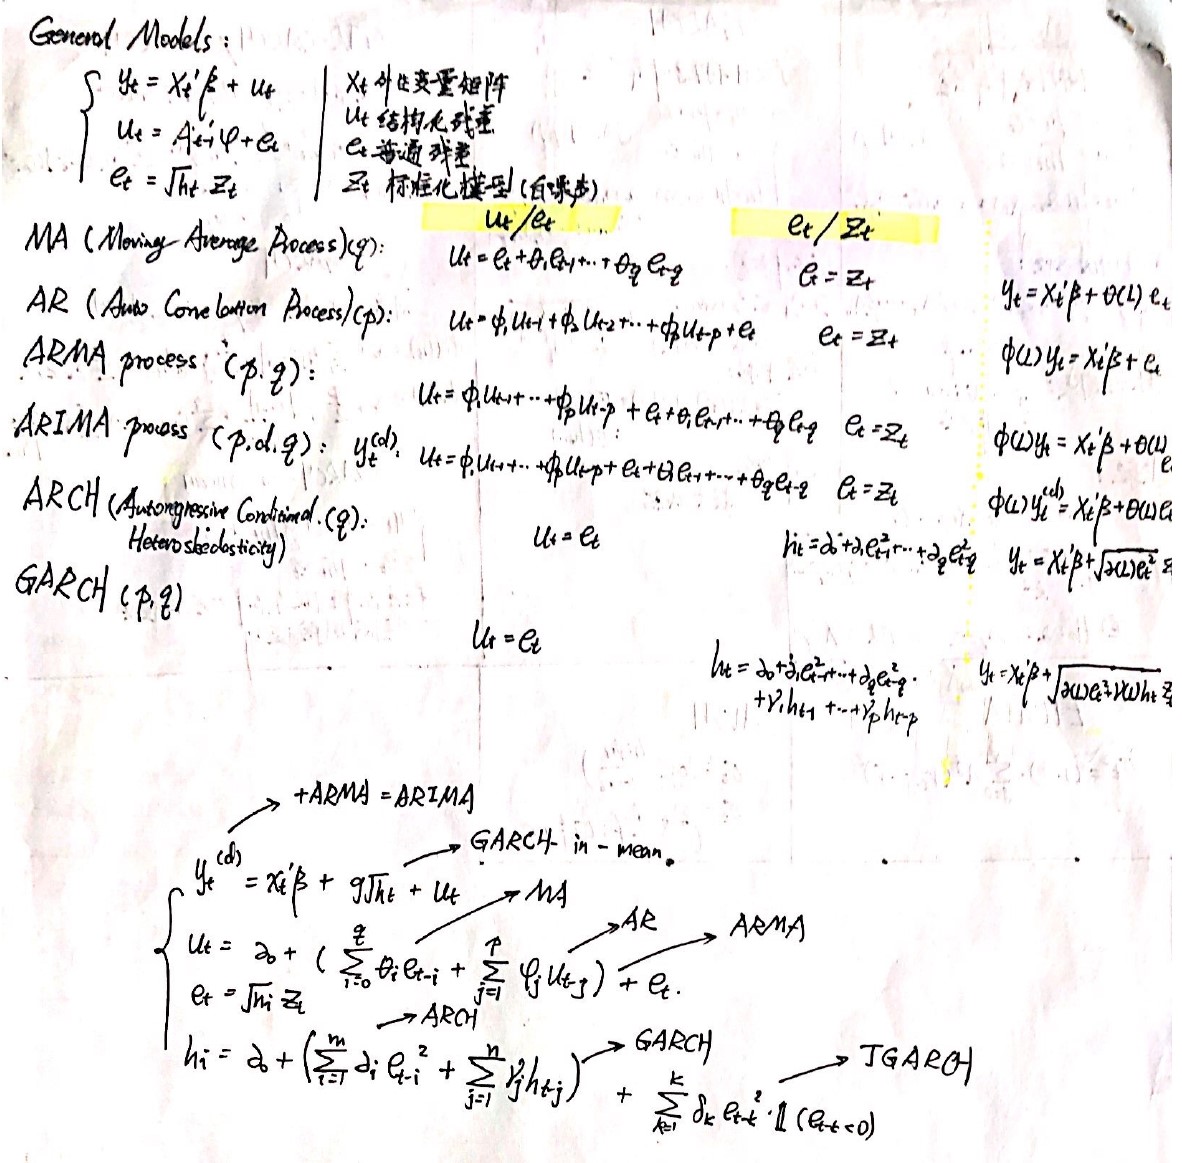 General Models:
yt = Xt'β + ut | Xt 外生变量矩阵
ut = At-1'φ + et | ut 结构化残差
et = √ht Zt | et 普通残差
Zt 标准化模型(白噪声)
ut/et et/Zt
MA (Moving Average Process)(q): ut = et + θ1et-1 + ... + θq et-q et = Zt yt = Xt'β + θ(L) et
AR (Auto Correlation Process)(p): ut = ϕ1ut-1 + ϕ2ut-2 + ... + ϕput-p + et et = Zt ϕ(L)yt = Xt'β + et
ARMA process (p.q): ut = ϕ1ut-1 + ... + ϕput-p + et + θ1et-1 + ... + θqet-q et = Zt ϕ(L)yt = Xt'β + θ(L)e
ARIMA process (p.d.q): yt(d). ut = ϕ1ut-1 + ... + ϕput-p + et + θ1et-1 + ... + θqet-q et = Zt ϕ(L)yt(d) = Xt'β + θ(L)e
ARCH (Autoregressive Conditional (q):
Heteroskedasticity) ut = et ht = α0 + α1e²t-1 + ... + αqe²t-q yt = Xt'β + √α(L)et² Z
GARCH (p,q)
ut = et ht = α0 + α1e²t-1 + ... + αqe²t-q yt = Xt'β + √α(L)et² + γ(L)ht Z
+ γ1ht-1 + ... + γpht-p
+ARMA = ARIMA
GARCH-in-mean.
yt(d) = xt'β + g√ht + ut
MA
AR
ARMA
ut = α0 + (∑i=0q θiet-i + ∑j=1p φjut-j) + et.
et = √hi Zt
ARCH
GARCH
TGARCH
hi = α0 + (∑i=1m αi et-i² + ∑j=1n γjht-j) + ∑k=1k δk et-k² · 𝟙(et-t<0)